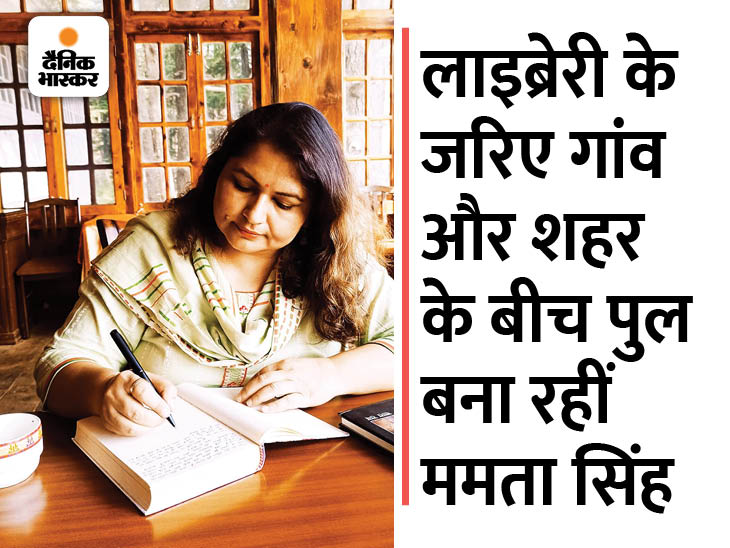 दैनिक
भास्कर
लाइब्रेरी के
जरिए गांव
और शहर
के बीच पुल
बना रहीं
ममता सिंह